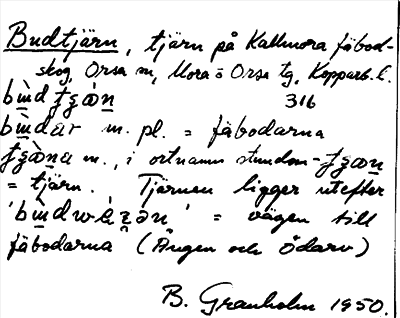 Budtjärn, tjärn på Kallmora fäbod-
skog, Orsa sn, Mora o Orsa tg, Kopparb. l.
316
m. pl. = fäbodarna
m., i ortnamn stundom -
= tjärn. Tjärnen ligger utefter
= vägen till
fäbodarna (Ängen och Ödarv)
B. Granholm 1950.